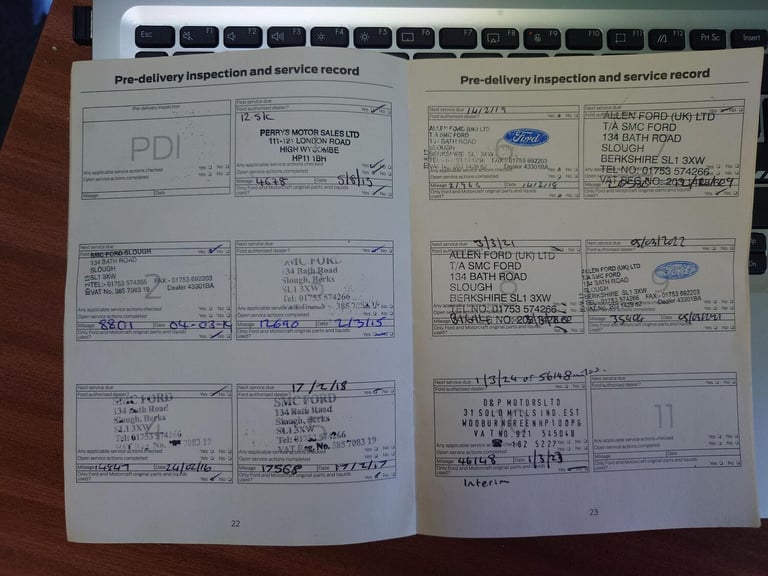 Esc F1 F2 F3 F4 F5 F6 F7 F8 F9 F10 F11 F12 Prt Sc Insert
Pre-delivery inspection and service record
Pre-delivery inspection
PDI
Any applicable service actions checked Yes No
Open service actions completed Yes No
Mileage Date
Next service due
Ford authorised dealer? Yes No
12.5K
PERRYS MOTOR SALES LTD
111-121 LONDON ROAD
HIGH WYCOMBE
HP11 1BH
Any applicable service actions checked Yes No
Open service actions completed Yes No
Mileage 4678 Date
Only Ford and Motorcraft original parts and liquids used? Yes No
Next service due
SMC FORD SLOUGH
134 BATH ROAD
SLOUGH
SL1 3XW
TEL - 01753 574266 FAX - 01753 692203
VAT No. 385 7083 19 Dealer 43301BA
2
Any applicable service actions
Open service actions completed Yes No
Mileage 8801 Date
Only Ford and Motorcraft original parts and liquids used? Yes No
Next service due
Ford authorised dealer? Yes No
SMC FORD
134 Bath Road
Slough, Berks
SL1 3XW
Tel: 01753 574266
Any applicable service actions
Open service actions completed Yes No
Mileage 12690 Date 2/3/15
Only Ford and Motorcraft original parts and liquids used? Yes No
Next service due
Ford authorised dealer? Yes No
SMC FORD
134 Bath Road
Slough, Berks
SL1 3XW
Tel: 01753 574266
VAT Reg. No. 7083 19
Open service actions completed Yes No
Mileage Date 24/02/16
Only Ford and Motorcraft original parts and liquids used? Yes No
Next service due 17/2/18
Ford authorised dealer? Yes No
SMC FORD
134 Bath Road
Slough, Berks
SL1 3XW
Tel: 01753 574266
VAT Reg. No. 385 7083 19
Open service actions completed Yes No
Mileage 17568 Date 17/2/17
Only Ford and Motorcraft original parts and liquids used? Yes No
22
Pre-delivery inspection and service record
Next service due 14/2/19
Ford authorised dealer? Yes No
ALLEN FORD (UK) LTD
T/A SMC FORD
134 BATH ROAD
SLOUGH
Ford
6
FAX - 01753 692203
Dealer 43301BA
Mileage Date 14/2/18
Only Ford and Motorcraft original parts and liquids used? Yes No
Next service due
ALLEN FORD (UK) LTD
T/A SMC FORD
134 BATH ROAD
SLOUGH
BERKSHIRE SL1 3XW
TEL NO: 01753 574266
7
Only Ford and Motorcraft original parts and liquids used? Yes No
Next service due 3/3/21
ALLEN FORD (UK) LTD
T/A SMC FORD
134 BATH ROAD
SLOUGH
BERKSHIRE SL1 3XW
TEL NO: 01753 574266
8
Only Ford and Motorcraft original parts and liquids used? Yes No
Next service due 05/03/2022
Ford authorised dealer? Yes No
ALLEN FORD (UK) LTD
T/A SMC FORD
134 BATH ROAD
SLOUGH
BERKSHIRE SL1 3XW
Ford
9
FAX - 01753 692203
Dealer 43301BA
Open service actions completed Yes No
Mileage Date 05/03/2021
Only Ford and Motorcraft original parts and liquids used? Yes No
Next service due 1/3/24 or 56148
Ford authorised dealer? Yes No
D&P MOTORS LTD
31 SOLO MILLS IND. EST
WOOBURN GREEN HP10 0PG
VAT NO. 921 5450 48
Any applicable service actions checked Yes No
Open service actions completed Yes No
Mileage 46148 Date 1/3/23
Only Ford and Motorcraft original parts and liquids used? Yes No
Interim
Next service due
Ford authorised dealer? Yes No
11
Any applicable service actions checked Yes No
Open service actions completed Yes No
Mileage Date
Only Ford and Motorcraft original parts and liquids used? Yes No
23